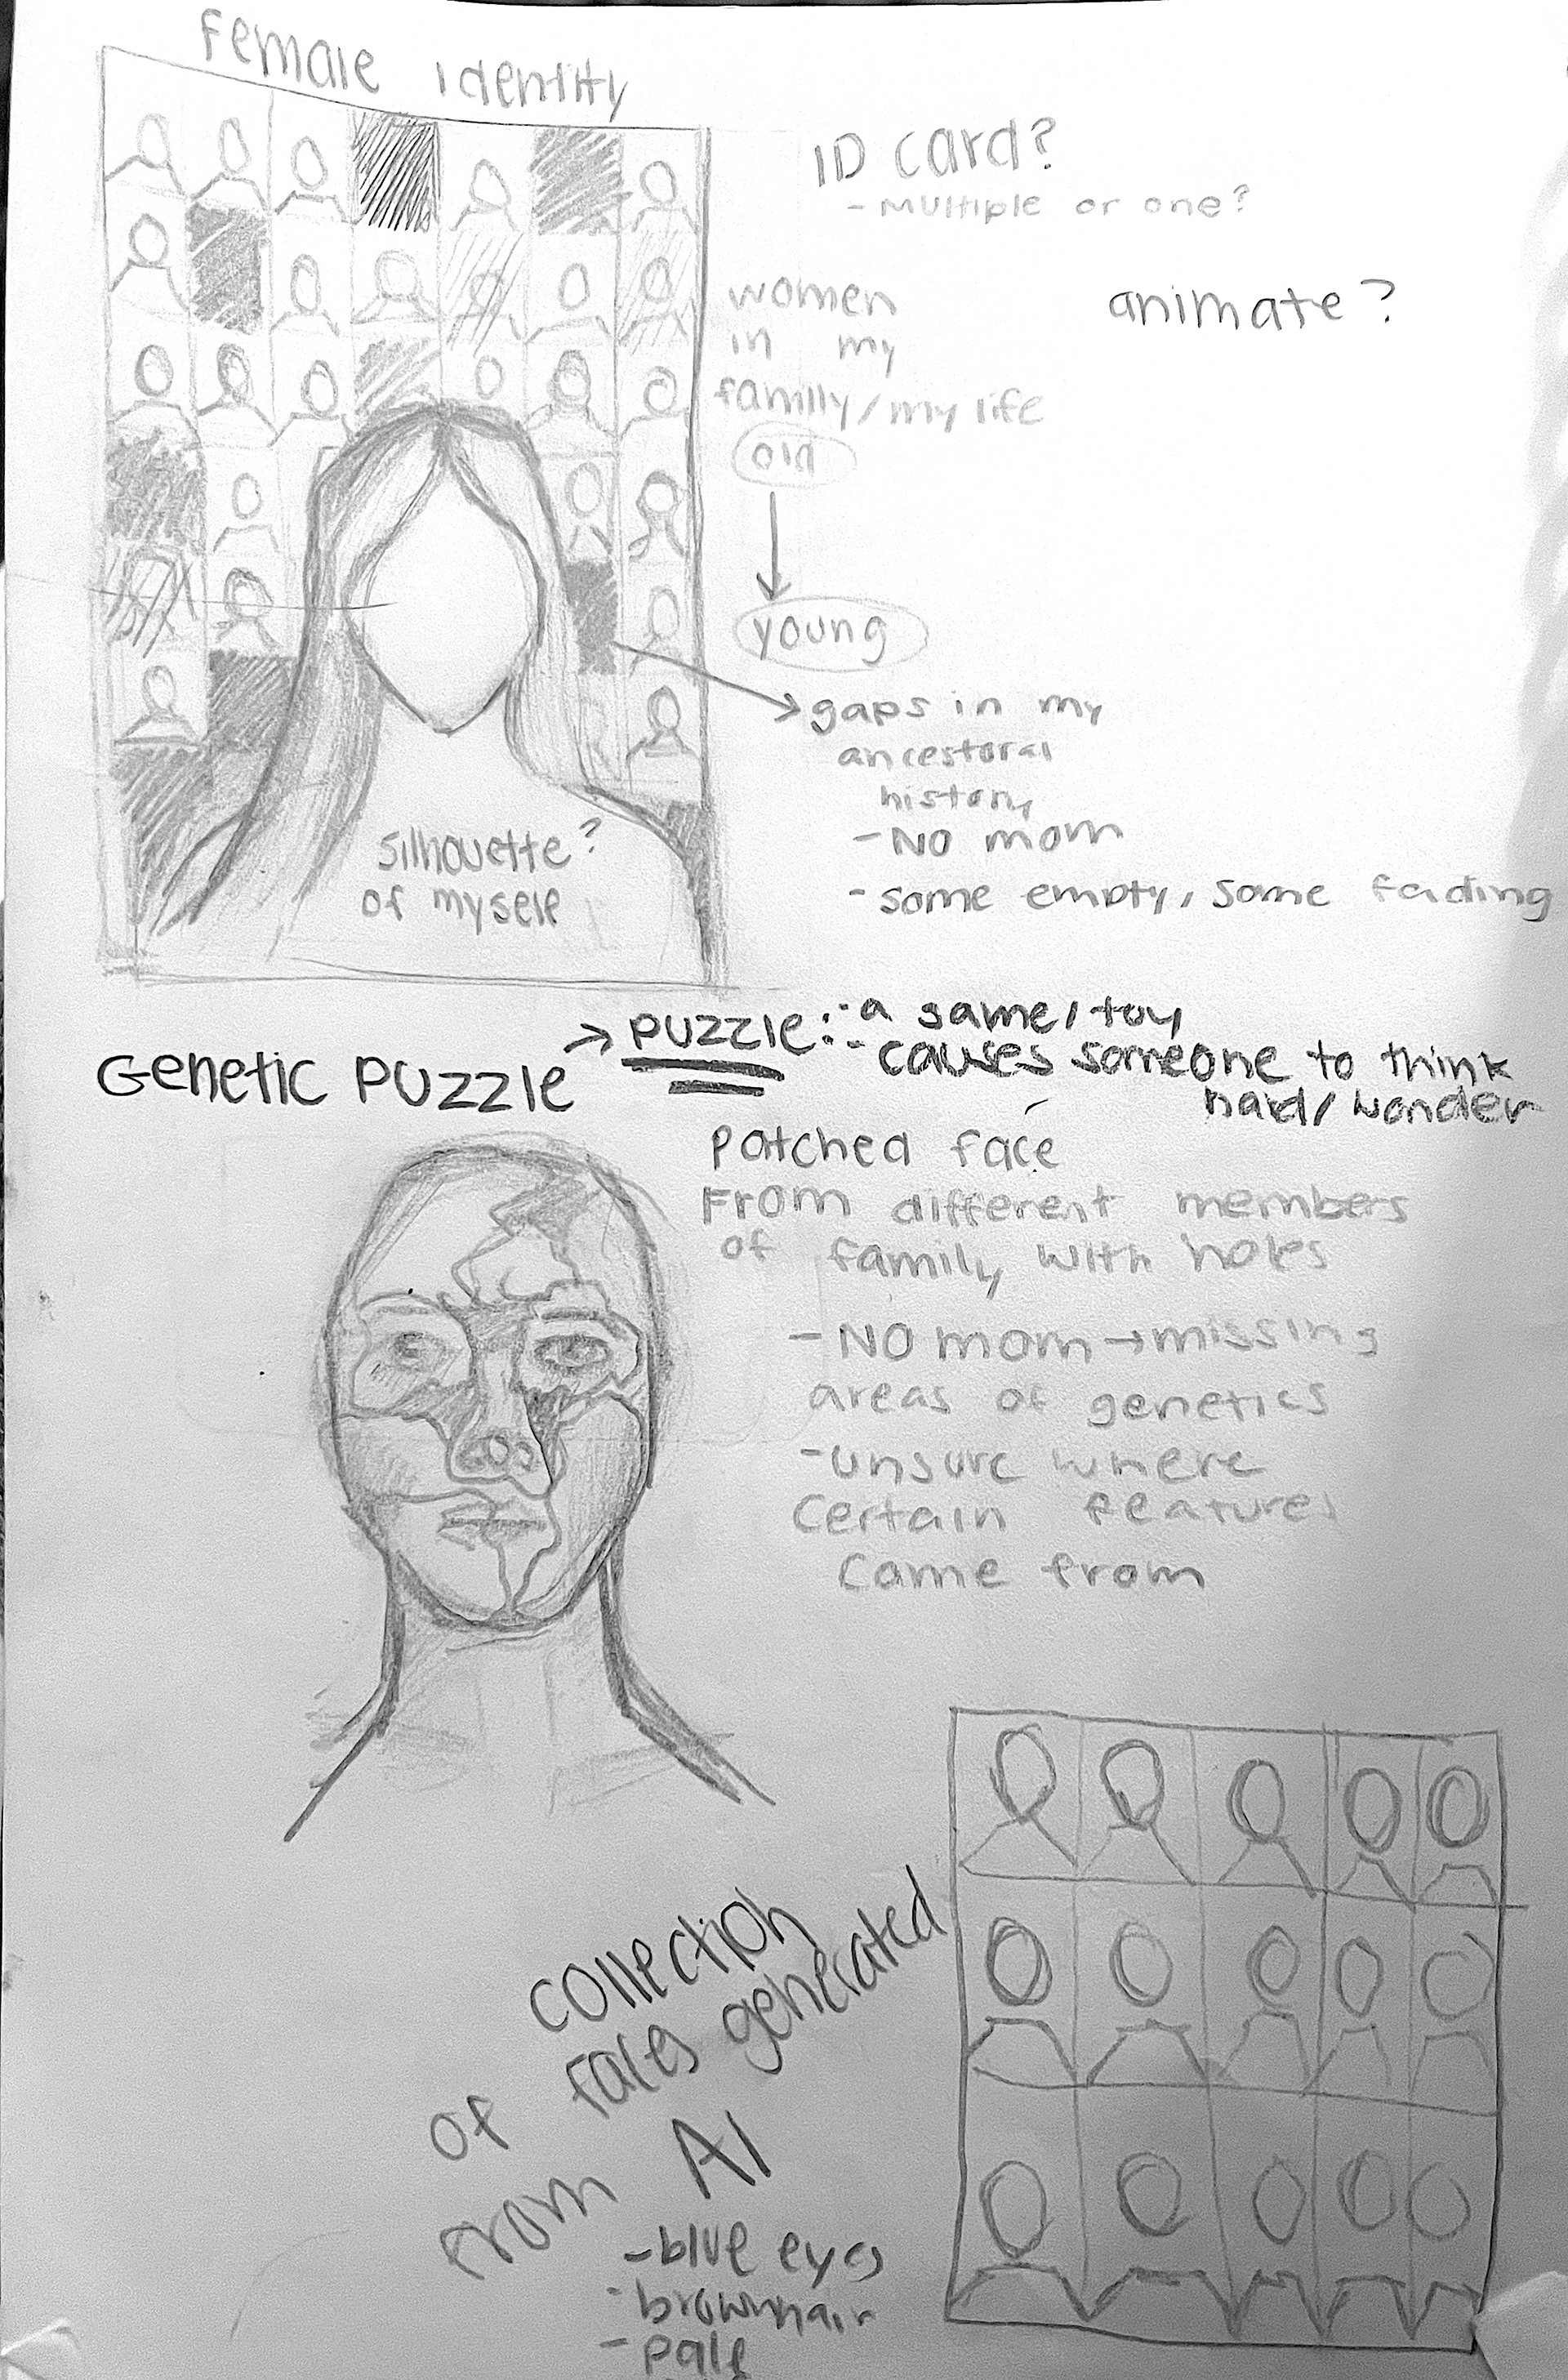 Female identity
ID card?
- Multiple or one?
animate?
women
in my
family/my life
old
young
gaps in my
ancestoral
history
- No mom
- some empty, some fading
silhouette?
of myself
Genetic Puzzle
→ Puzzle: - a game/toy
- causes someone to think
hard/wonder
Patched face
From different members
of family with holes
- No mom → missing
areas of genetics
- unsure where
certain features
came from
collection
of faces generated
from AI
- blue eyes
- brown hair
- pale